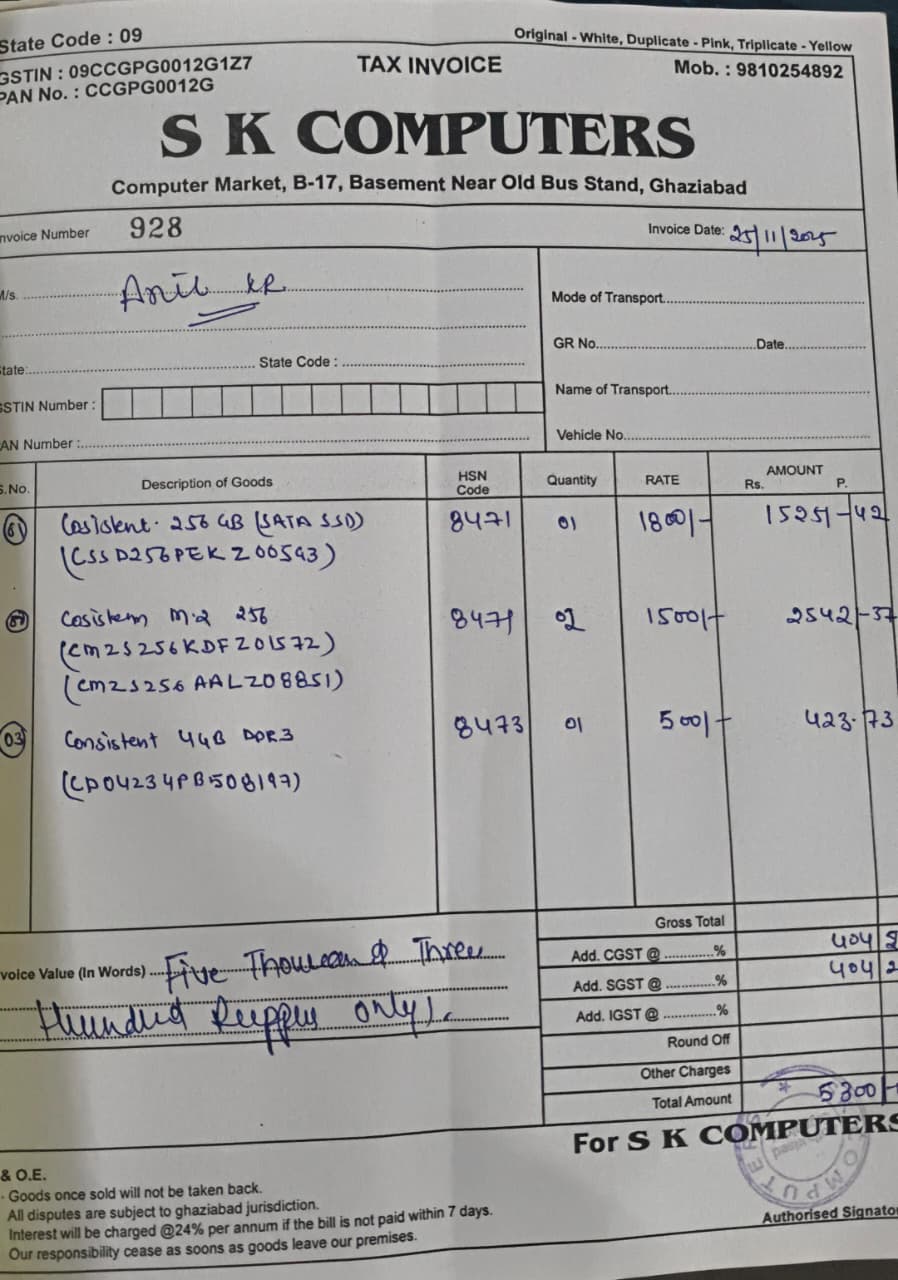 State Code : 09
Original - White, Duplicate - Pink, Triplicate - Yellow
GSTIN : 09CCGPG0012G1Z7
TAX INVOICE
Mob. : 9810254892
PAN No. : CCGPG0012G
S K COMPUTERS
Computer Market, B-17, Basement Near Old Bus Stand, Ghaziabad
nvoice Number 928
Invoice Date: 25/11/2025
M/s. Anil kr
Mode of Transport
GR No. Date
State: State Code :
Name of Transport
GSTIN Number :
Vehicle No.
AN Number :
S.No. Description of Goods HSN Code Quantity RATE AMOUNT Rs. P.
01 Cosistent 256 GB (SATA SSD) 8471 01 1800/- 1525-42
(CSSD256PEKZ00593)
02 Cosistem M.2 256 8471 02 1500/- 2542-37
(CM2S256KDFZ01572)
(CM2S256AALZ08851)
03 Consistent 4GB DDR3 8473 01 500/- 423.73
(CD04234PB508197)
Gross Total
voice Value (In Words) Five Thousand Three
Add. CGST @ % 404 2
Hundred Ruppes only).
Add. SGST @ % 404 2
Add. IGST @ %
Round Off
Other Charges
Total Amount 5300/-
For S K COMPUTERS
& O.E.
- Goods once sold will not be taken back.
All disputes are subject to ghaziabad jurisdiction.
Interest will be charged @24% per annum if the bill is not paid within 7 days.
Our responsibility cease as soon as goods leave our premises.
Authorised Signato